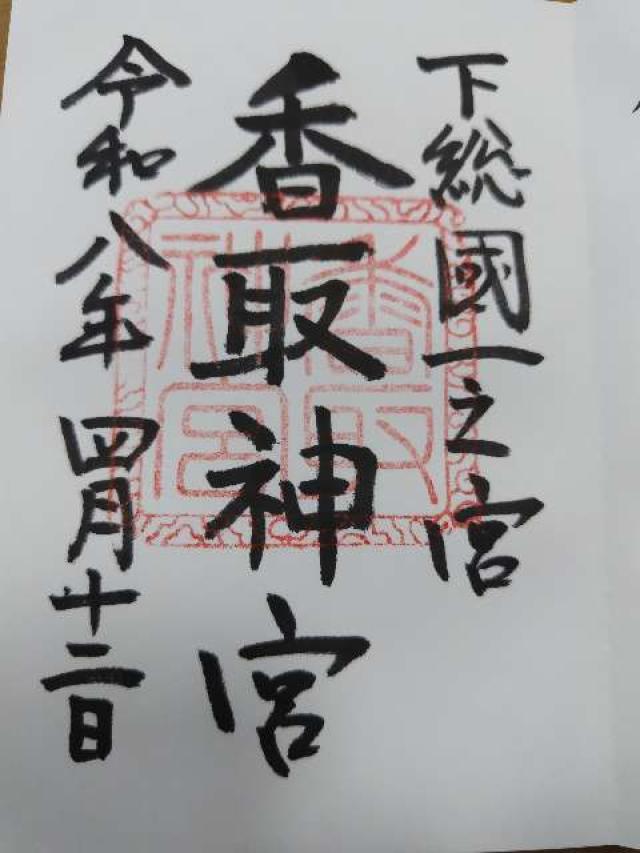 下総國一之宮
香取神宮
令和八年四月十二日
香取神宮